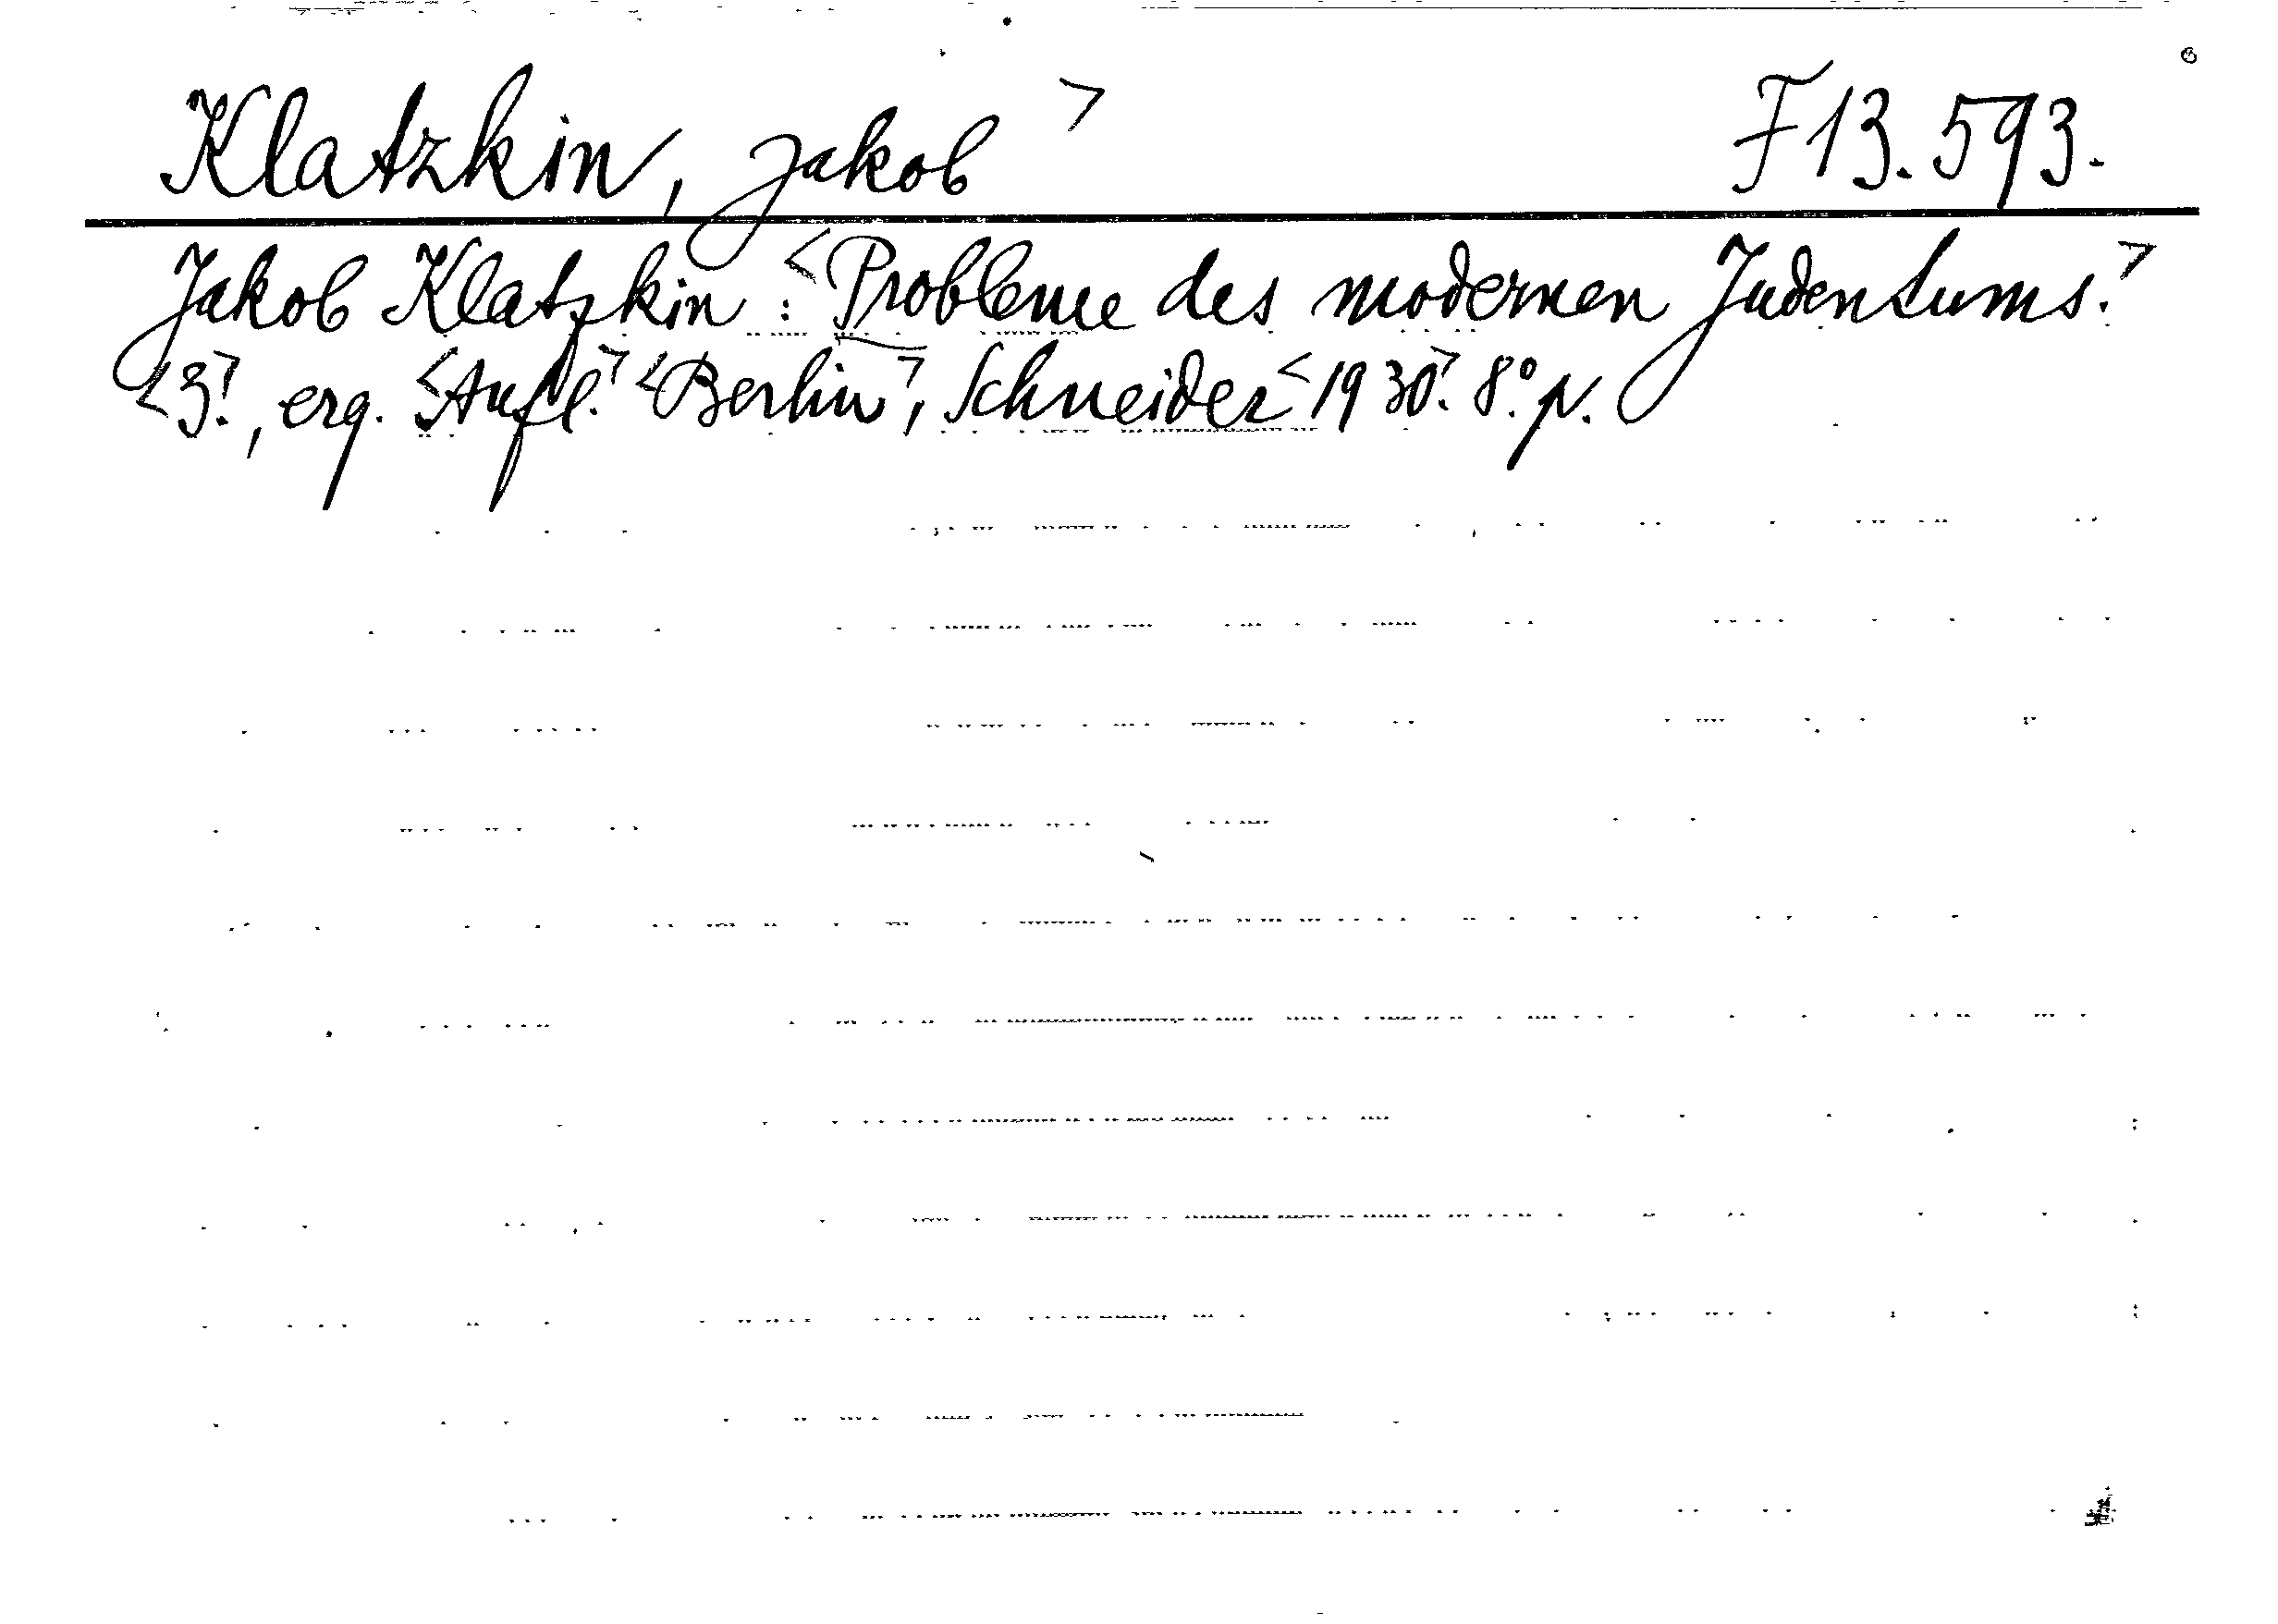 Klatzkin, Jakob > F 13.593.
Jakob Klatzkin : <Probleme des modernen Judentums.>
<3.>, erg. <Aufl.> <Berlin>, Schneider <1930>. 8°. p.